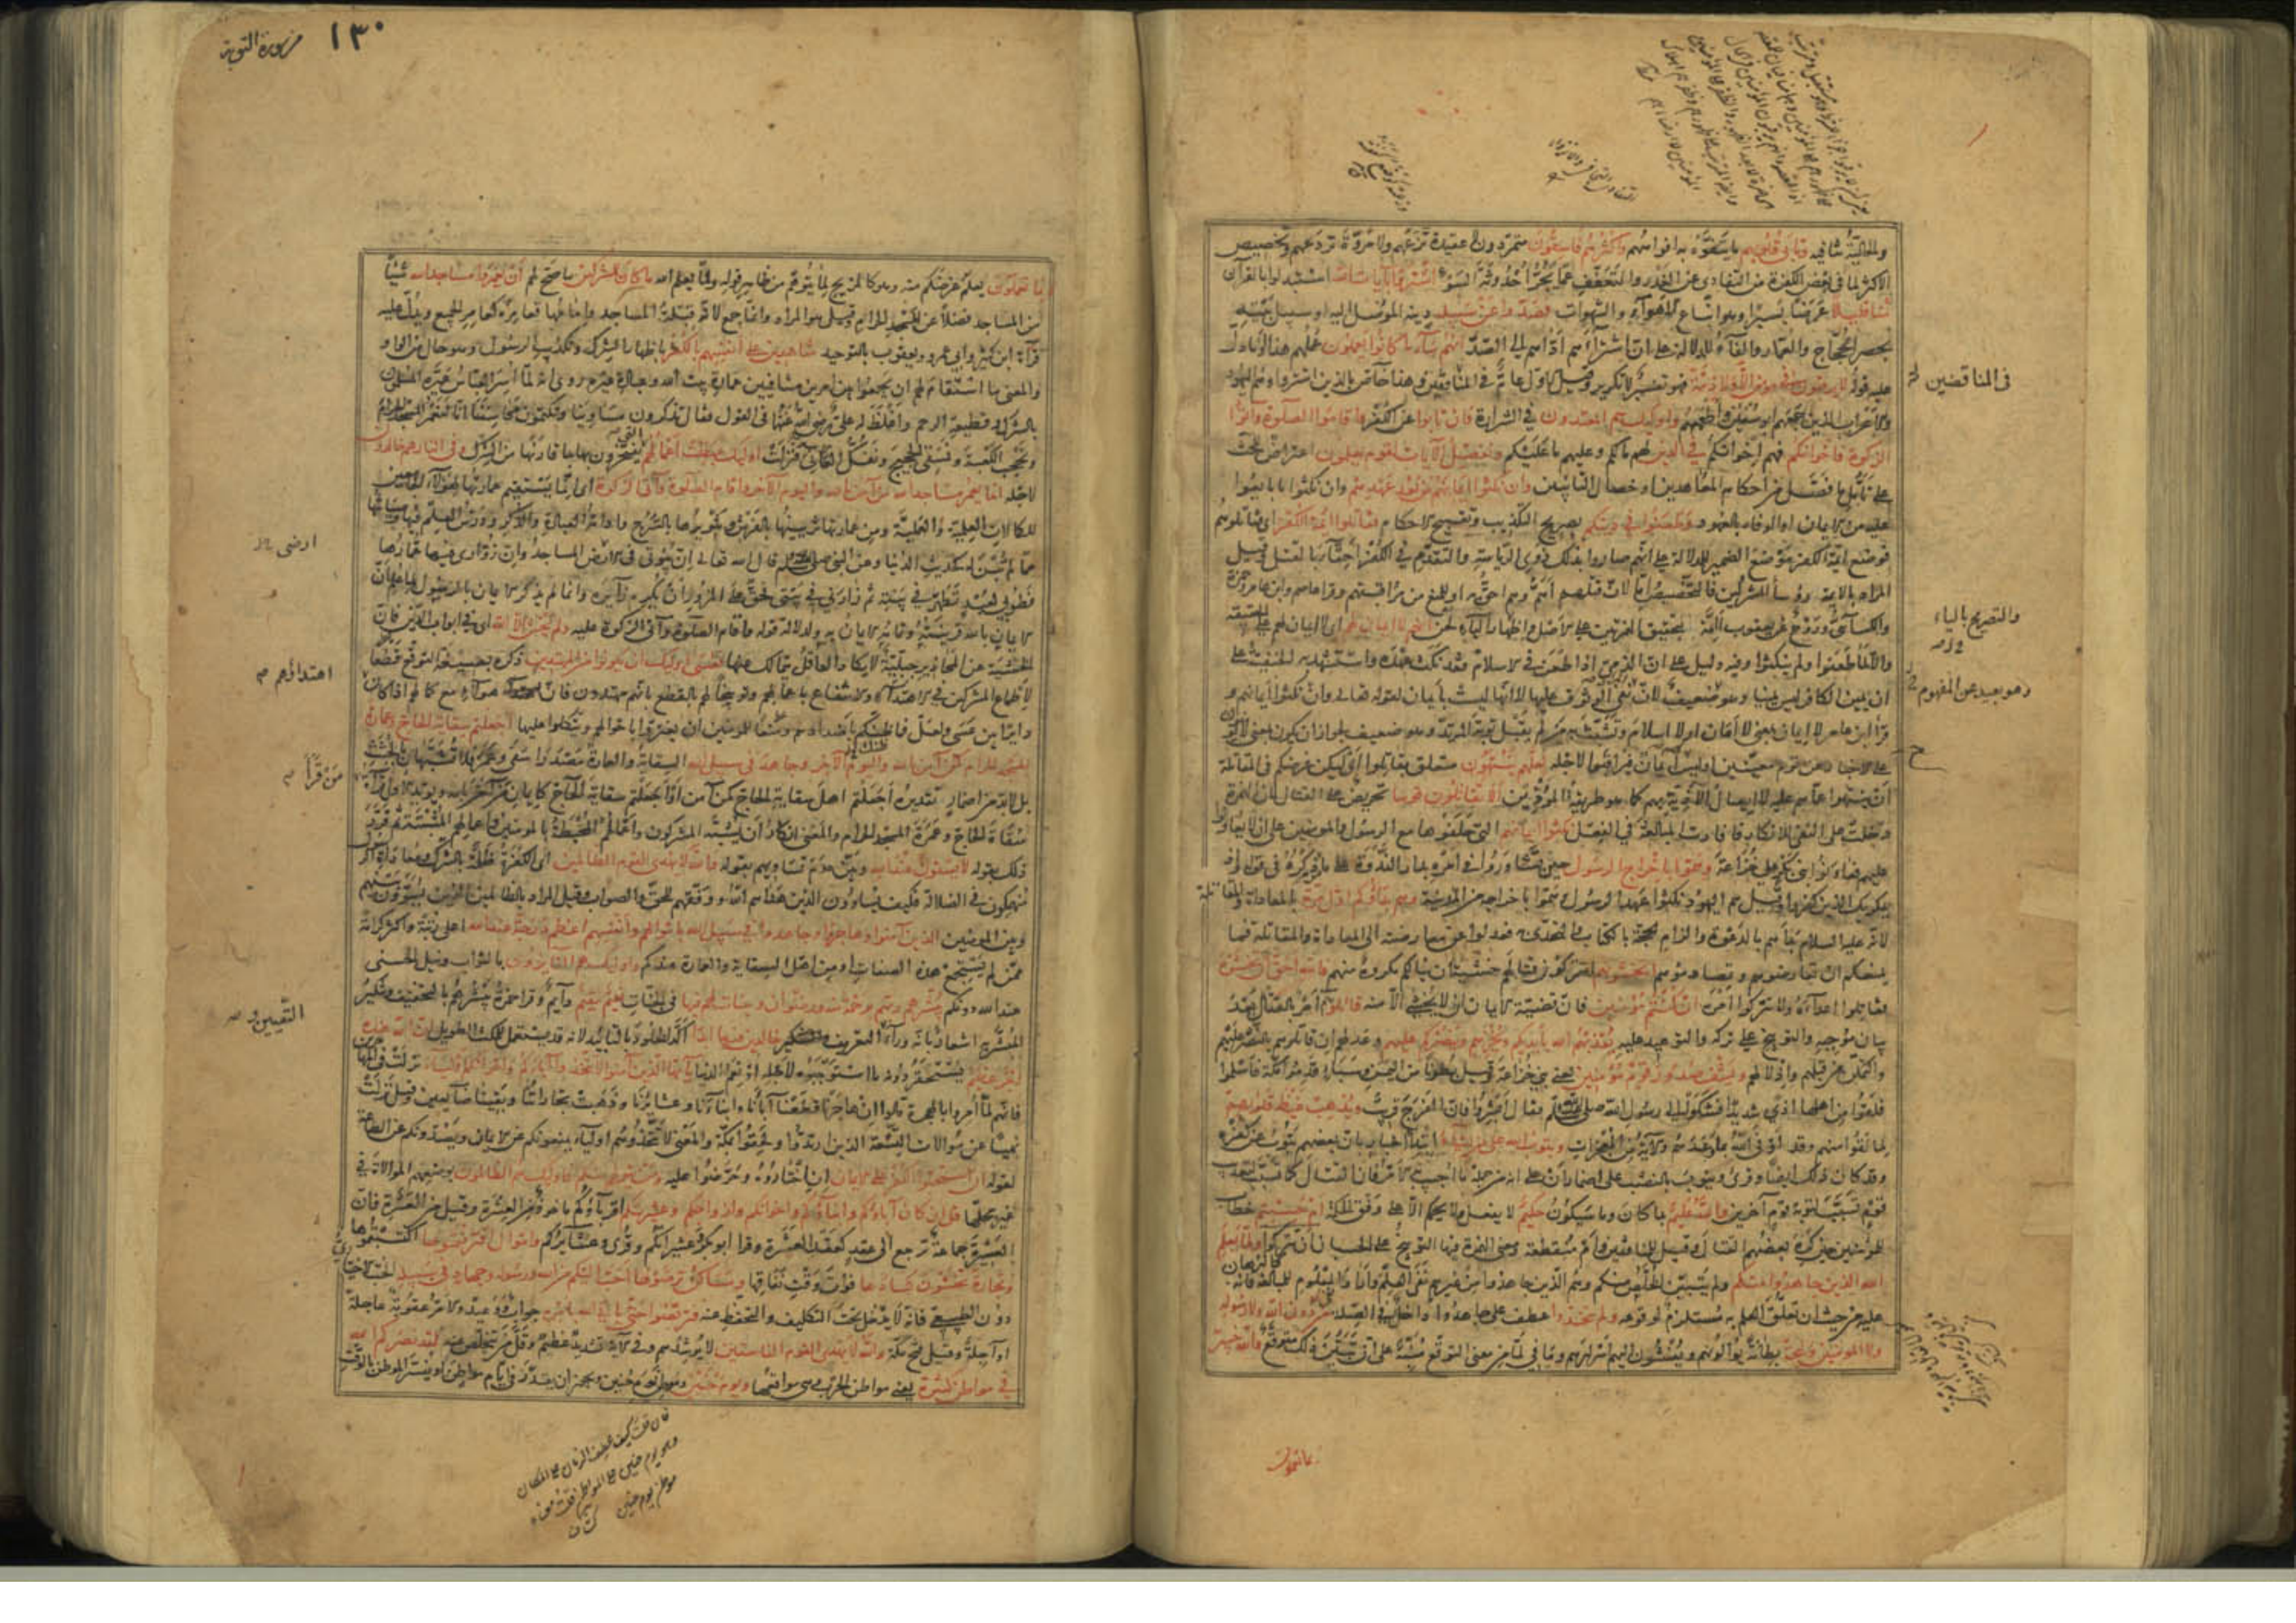 والحالية تنافيه وتأبى قلوبهم ما يتفوه به افواههم واكثرهم فاسقون متمردون لا عقيدة تزعهم ولا مروة تردعهم وتخصيص
الاكثر لما في بعض الكفرة من التفادى عن الغدر والتعفف عما يجر احدوثة السوء اشتروا بآيات الله استبدلوا بالقرآن
ثمنا قليلا عرضا يسيرا وهو اتباع الاهواء والشهوات فصدوا عن سبيله دينه الموصل اليه او سبيل بيته
بحصر الحجاج والعمار والفاء للدلالة على ان اشتراءهم اداهم الى الصد انهم ساء ما كانوا يعملون عملهم هذا او ما دل
عليه قوله لا يرقبون في مؤمن الا ولا ذمة فهو تفسير لا تكرير وقيل الاول عام في المنافقين وهذا خاص بالذين اشتروا وهم اليهود
والاعراب الذين جمعهم ابو سفين واطعمهم واولئك هم المعتدون في الشرارة فان تابوا عن الكفر واقاموا الصلوة واتوا
الزكوة فاخوانكم فهم اخوانكم في الدين لهم ما لكم وعليهم ما عليكم ونفصل الآيات لقوم يعلمون اعتراض للحث
على تأمل ما فصل من احكام المعاهدين وخصال التائبين وان نكثوا ايمانهم من بعد عهدهم وان نكثوا ما بايعوا
عليه من الايمان او الوفاء بالعهود وطعنوا في دينكم بصريح التكذيب وتقبيح الاحكام فقاتلوا ائمة الكفر اى فقاتلوهم
فوضع ائمة الكفر موضع الضمير للدلالة على انهم صاروا بذلك ذوى الرياسة والتقدم في الكفر احقاء بالقتل وقيل
المراد بالائمة رؤساء المشركين فالتخصيص اما لان قتلهم اهم وهم احق به او للمنع من مراقبتهم وقرا عاصم وابن عامر وحمزة
والكسائى وروح عن يعقوب ائمة بتحقيق الهمزتين على الاصل واظهار الياء لحن انهم لا ايمان لهم اى لا ايمان لهم على الحقيقة
والا لما طعنوا ولم ينكثوا وفيه دليل على ان الذمى اذا طعن في الاسلام فقد نكث عهده واستشهد به الحنفية على
ان يمين الكافر ليس يمينا وهو ضعيف لان المراد نفى الوثوق عليها لا انها ليست بايمان لقوله تعالى وان نكثوا ايمانهم
قرأ ابن عامر لا ايمان بمعنى لا امان او لا اسلام وتشبث به من لم يقبل توبة المرتد وهو ضعيف لجواز ان يكون بمعنى لا يؤمنون
على الاخبار عن قوم معينين او ليس لهم ايمان فيراقبوا لاجله لعلهم ينتهون متعلق بقاتلوا اى ليكن غرضكم في المقاتلة
ان ينتهوا عما هم عليه لا ايصال الاذية بهم كما هو طريقة الموذين الا تقاتلون قوما تحريض على القتال لان الهمزة
دخلت على النفى للانكار فافادت المبالغة في الفعل نكثوا ايمانهم التى حلفوها مع الرسول والمومنين على ان لا يعاونوا
عليهم فعاونوا بنى بكر على خزاعة وهموا باخراج الرسول حين تشاوروا في امره بدار الندوة على ما مر ذكره في قوله واذ
يمكر بك الذين كفروا وقيل هم اليهود نكثوا عهد الرسول وهموا باخراجه من المدينة وهم بدؤكم اول مرة بالمعاداة والمقاتلة
لانه عليه السلام بدأهم بالدعوة والزام الحجة بالكتاب والتحدى به فعدلوا عن معارضته الى المعاداة والمقاتلة فما
يمنعكم ان تعارضوهم وتصادموهم اتخشونهم اتتركون قتالهم خشية ان ينالكم مكروه منهم فالله احق ان تخشوه
فقاتلوا اعداءه ولا تتركوا امره ان كنتم مؤمنين فان قضية الايمان ان لا يخشى الا منه قاتلوهم امر بالقتال بعد
بيان موجبه والتوبيخ على تركه والتوعيد عليه يعذبهم الله بأيديكم ويخزهم وينصركم عليهم وعد لهم ان قاتلوهم بالنصر عليهم
والتمكن من قتلهم واذلالهم ويشف صدور قوم مؤمنين يعنى بنى خزاعة وقيل بطونا من اليمن وسبأ قدموا مكة فاسلموا
فلقوا من اهلها اذى شديدا فشكوا الى رسول الله صلى الله عليه وسلم فقال ابشروا فان الفرج قريب ويذهب غيظ قلوبهم
لما لقوا منهم وقد اوفى الله بما وعدهم والآية من المعجزات ويتوب الله على من يشاء ابتداء اخبار بان بعضهم يتوب عن كفره
وقد كان ذلك ايضا وقرى ويتوب بالنصب على اضمار ان على انه من جملة ما اجيب به الامر فان القتال كما تسبب لتعذيب
قوم تسبب لتوبة قوم آخرين والله عليم بما كان وما سيكون حكيم لا يفعل ولا يحكم الا على وفق الحكمة ام حسبتم خطاب
للمؤمنين حين كره بعضهم القتال وقيل للمنافقين وام منقطعة ومعنى الهمزة فيها التوبيخ على الحسبان ان تتركوا ولما يعلم
الله الذين جاهدوا منكم ولم يتبين الخلص منكم وهم الذين جاهدوا من غيرهم نفى العلم واراد نفى المعلوم للمبالغة فانه كالبرهان
عليه من حيث ان تعلق العلم به مستلزم لوقوعه ولم يتخذوا عطف على جاهدوا داخل في الصلة من دون الله ولا رسوله
ولا المومنين وليجة بطانة يوالونهم ويفشون اليهم اسرارهم وما في لما من معنى التوقع منبه على ان تبين ذلك متوقع والله خبير
بما تعملون
في المناقضين
والتصريح بالياء
وهو بعيد عن المفهوم
١٣٠
من سورة التوبة
بما تعملون يعلم غرضكم منه وهو كالمزيح لما يتوهم من ظاهر قوله ولما يعلم الله ما كان للمشركين ما صح لهم ان يعمروا مساجد الله شيئا
من المساجد فضلا عن المسجد الحرام وقيل هو المراد وانما جمع لانه قبلة المساجد وامامها فعامره كعامر الجميع ويدل عليه
قراءة ابن كثير وابى عمرو ويعقوب بالتوحيد شاهدين على انفسهم بالكفر باظهار الشرك وتكذيب الرسول وهو حال من الواو
والمعنى ما استقام لهم ان يجمعوا بين امرين متنافيين عمارة بيت الله وعبادة غيره روى انه لما اسر العباس عيره المسلمون
بالشرك وقطيعة الرحم واغلظ له على رضى الله عنه في القول فقال تذكرون مساوينا وتكتمون محاسننا انا لنعمر المسجد الحرام
ونحجب الكعبة ونسقى الحجيج ونفك العانى فنزلت اولئك حبطت اعمالهم التى يفتخرون بها بما قارنها من الشرك وفى النار هم خالدون
لاجله انما يعمر مساجد الله من آمن بالله واليوم الآخر واقام الصلوة وآتى الزكوة اى انما يستقيم عمارتها لهؤلاء الجامعين
للكمالات العلمية والعملية ومن عمارتها تزيينها بالفرش وتنويرها بالسرج وادامة العبادة والذكر ودرس العلم فيها وصيانتها
مما لم تبن له كحديث الدنيا وعن النبى صلى الله عليه وسلم قال الله تعالى ان بيوتى في ارضى المساجد وان زوارى فيها عمارها
فطوبى لعبد تطهر في بيته ثم زارنى في بيتى فحق على المزور ان يكرم زائره وانما لم يذكر الايمان بالرسول لما علم ان
الايمان بالله قرينته وتمامه الايمان به ولدلالة قوله واقام الصلوة وآتى الزكوة عليه ولم يخش الا الله اى في ابواب الدين فان
الخشية عن المحاذير جبلية لا يكاد العاقل يتمالك عنها فعسى اولئك ان يكونوا من المهتدين ذكره بصيغة التوقع قطعا
لاطماع المشركين في الاهتداء والانتفاع باعمالهم وتوبيخا لهم بالقطع بانهم مهتدون فان هؤلاء مع كمالهم اذا كان
دايرا بين عسى ولعل فما ظنك باضدادهم ومنعا للمومنين ان يغتروا باحوالهم ويتكلوا عليها اجعلتم سقاية الحاج وعمارة
المسجد الحرام كمن آمن بالله واليوم الآخر وجاهد في سبيل الله السقاية والعمارة مصدرا سقى وعمر فلا تشبهان بالجثث
بل لابد من اضمار تقديره اجعلتم اهل سقاية الحاج كمن آمن او اجعلتم سقاية الحاج كايمان من آمن ويؤيد الاول قراءة
سقاة الحاج وعمرة المسجد الحرام والمعنى انكار ان يشبه المشركون واعمالهم المحبطة بالمومنين واعمالهم المثبتة ثم قرر
ذلك بقوله لا يستوون عند الله وبين عدم تساويهم بقوله والله لا يهدى القوم الظالمين اى الكفرة ظلمة بالشرك ومعاداة الرسول
منهمكون في الضلالة فكيف يساوون الذين هداهم الله ووفقهم للحق والصواب وقيل المراد بالظالمين الذين يسوون بينهم
وبين المومنين الذين آمنوا وهاجروا وجاهدوا في سبيل الله باموالهم وانفسهم اعظم درجة عند الله اعلى رتبة واكثر كرامة
ممن لم يستجمع هذه الصفات او من اهل السقاية والعمارة عندكم واولئك هم الفايزون بالثواب ونيل الحسنى
عند الله دونكم يبشرهم ربهم برحمة منه ورضوان وجنات لهم فيها في الجنات نعيم مقيم دائم وقرا حمزة يبشرهم بالتخفيف وتنكير
المبشر به اشعار بانه وراء التعيين والتعريف خالدين فيها ابدا اكد الخلود بالتأبيد لانه قد يستعمل للمكث الطويل ان الله عنده
اجر عظيم يستحقر دونه ما استوجبوه لاجله او نعم الدنيا يا ايها الذين آمنوا لا تتخذوا آباءكم واخوانكم اولياء نزلت في المهاجرين
فانهم لما امروا بالهجرة قالوا ان هاجرنا قطعنا آباءنا وابناءنا وعشايرنا وذهبت تجاراتنا وبقينا ضايعين وقيل نزلت
نهيا عن موالاة التسعة الذين ارتدوا ولحقوا بمكة والمعنى لا تتخذوهم اولياء يمنعونكم عن الايمان ويصدونكم عن الطاعة
لقوله ان استحبوا الكفر على الايمان ان اختاروه وحرضوا عليه ومن يتولهم منكم فاولئك هم الظالمون بوضعهم الموالاة في
غير محلها قل ان كان آباؤكم وابناؤكم واخوانكم وازواجكم وعشيرتكم اقرباؤكم مأخوذ من العشرة وقيل من العشرة فان
العشيرة جماعة ترجع الى عقد كعقد العشرة وقرا ابو بكر وعشيراتكم وقرى وعشايركم واموال اقترفتموها اكتسبتموها
وتجارة تخشون كسادها فوت وقت نفاقها ومساكن ترضونها احب اليكم من الله ورسوله وجهاد في سبيله الحب الاختيارى
دون الطبيعى فانه لا يدخل تحت التكليف والتحفظ عنه فتربصوا حتى يأتى الله بامره جواب ووعيد والامر عقوبة عاجلة
او آجلة وقيل فتح مكة والله لا يهدى القوم الفاسقين لا يرشدهم وفى الآية تشديد عظيم وقل من يتخلص منه لقد نصركم الله
في مواطن كثيرة يعنى مواطن الحرب وهى مواقفها ويوم حنين وموطن يوم حنين ويجوز ان يقدر في ايام مواطن او يفسر الموطن بالوقت
ارضى
اهتداؤهم
من قرأ
التعيين و
فان قلت كيف عطف الزمان على المكان
وهو يوم حنين على المواطن قلت معناه
موطن يوم حنين
كشاف